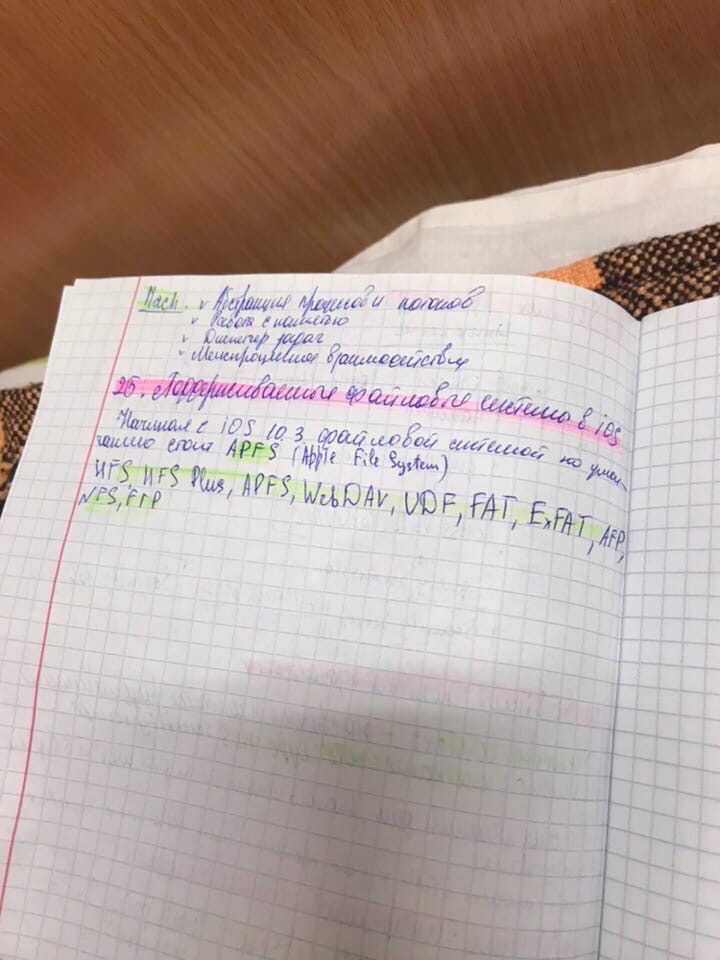 Mach. v Абстракция процессов и потоков
v Работа с памятью
v Диспетчер задач
v Межпроцессное взаимодействие
25. Поддерживаемые файловые системы в iOS
Начиная с iOS 10.3 файловой системой по умол-
чанию стоит APFS (Apple File System)
HFS, HFS Plus, APFS, WebDAV, UDF, FAT, ExFAT, AFP,
NFS, FTP